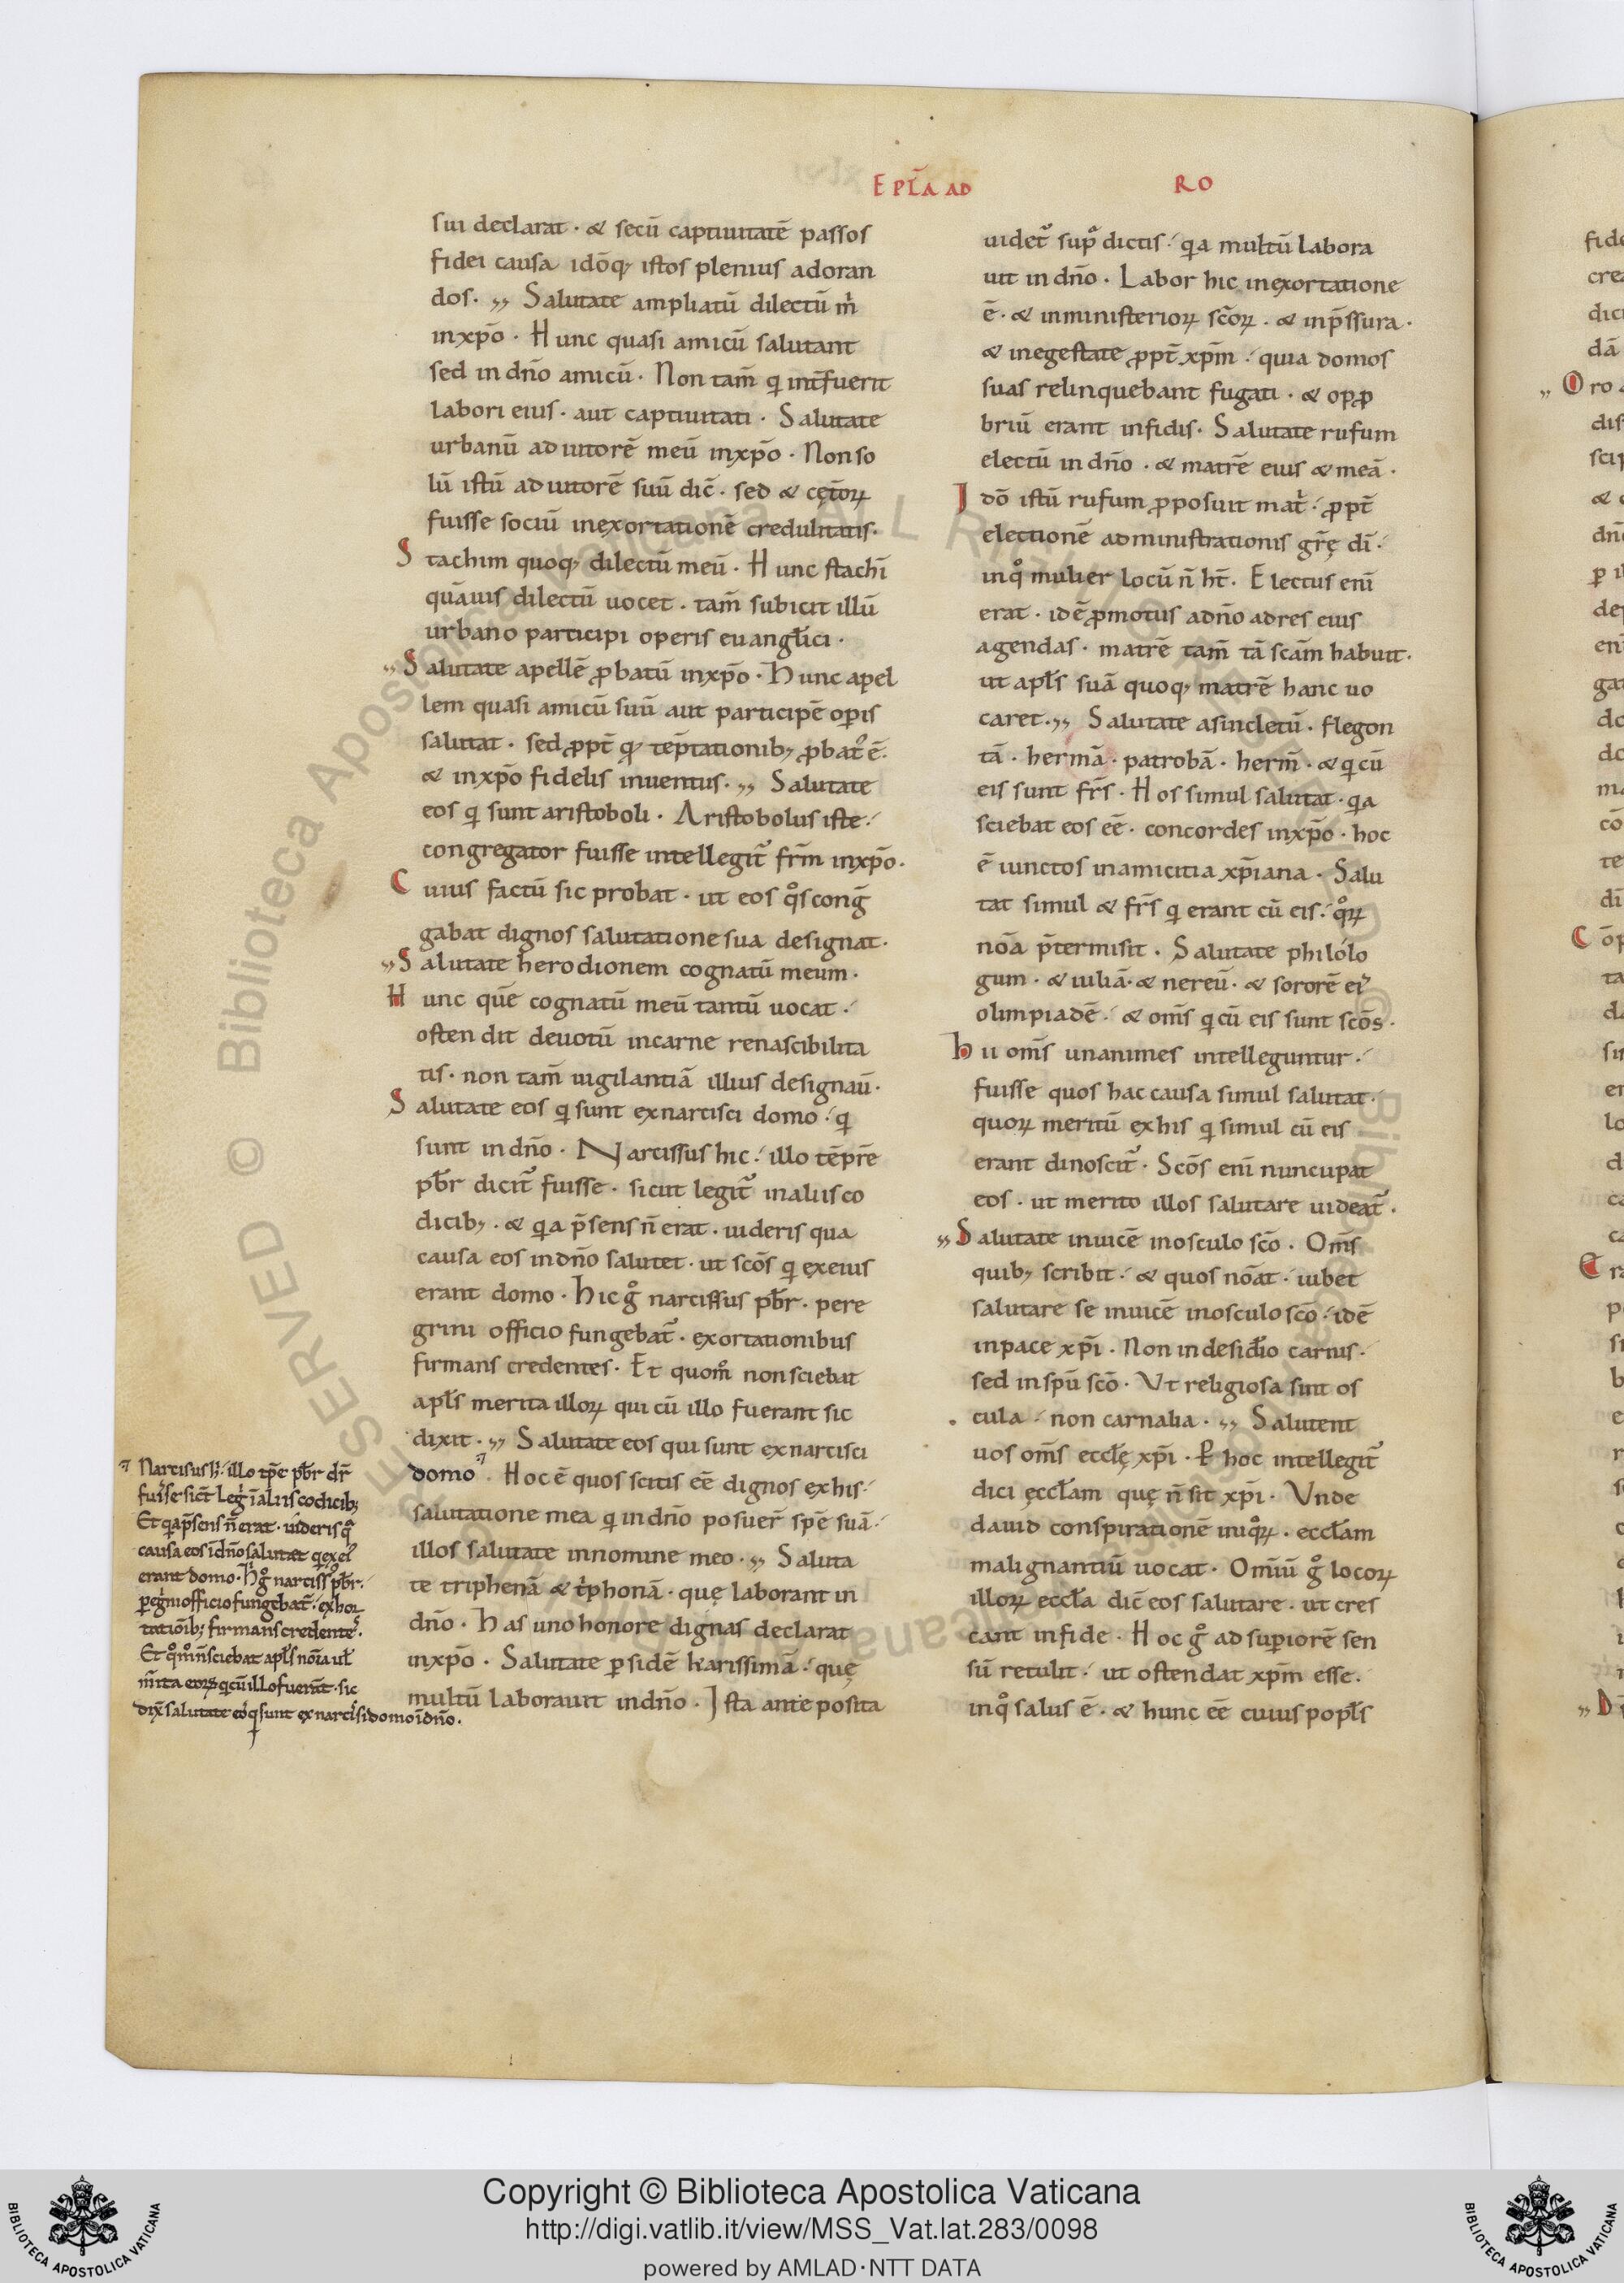 EPL̄A AD RO
sui declarat · & secū captiuitatē passos
fidei causa idōq; istos plenius adoran
dos · ,, Salutate ampliatū dilectū m̄
inxp̄o · Hunc quasi amicū salutant
sed in dn̄o amicū · Non tam̄ q int̄fuerit
labori eius · aut captiuitati · Salutate
urbanū adiutorē meū inxp̄o · Non so
lū istū adiutorē suū dic̄ · sed & cęt̄oꝝ
fuisse sociū inexortationē credulitatis ·
Stachim quoq; dilectū meū · Hunc stachī
quāuis dilectū uocet · tam̄ subicit illū
urbano participi operis euangl̄ici ·
,, Salutate apellē ꝓbatū inxp̄o · Hunc apel
lem quasi amicū suū aut participē oꝑis
salutat · sed ꝓpt̄ qꝫ tēptationib; ꝓbat᷒ ē ·
& inxp̄o fidelis inuentus · ,, Salutate
eos q sunt aristoboli · Aristobolus iste ·
congregator fuisse intellegit᷑ fr̄m inxp̄o ·
Cuius factū sic probat · ut eos qͦs conḡ
gabat dignos salutatione sua designat ·
,, Salutate herodionem cognatū meum ·
Hunc quē cognatū meū tantū uocat ·
ostendit deuotū incarne renascibilita
tis · non tam̄ uigilantiā illius designau̅ ·
Salutate eos q sunt exnarcisci domo · q
sunt in dn̄o · Narcissus hic · illo tēpr̄e
pb̄r dicit᷑ fuisse · sicut legit᷑ inaliis co
dicib; · & qa p̄sens n̄ erat · uideris qua
causa eos indn̄o salutet · ut sc̄os q exeius
erant domo · Hic gͦ narcissus pb̄r · pere
grini officio fungebat᷑ · exortationibus
firmans credentes · Et quom̊ non sciebat
apl̄s merita illoꝝ qui cū illo fuerant sic
dixit · ,, Salutate eos qui sunt exnarcisci
domo · Hoc ē quos scitis eē dignos exhis ·
salutatione mea q indn̄o posuer̄ spē suā ·
illos salutate innomine meo · ,, Saluta
te triphenā & tͥphonā · quę laborant in
dn̄o · Has uno honore dignas declarat
inxp̄o · Salutate ꝑsidē karissimā · quę
multū laborauit indn̄o · Ista ante posita
Narcisus h̄ · illo tp̄e pb̄r dr̄
fuisse sict̄ leḡ īaliis codicib;
Et qa p̄sens n̄ erat · uideris qͣ
causa eos īdn̄o salutat q ex ei᷒
erant domo · H̄ gͦ narciss᷒ pb̄r ·
ꝑegͥni officio fungebat᷑ · exhor
tatiōib; firmans credente᷒ ·
Et qͦm̄ n̄ sciebat apl̄s nōīa ul̄
m̄ita eoꝝ q cū illo fuerāt · sic
dix̄ salutate eo᷒ q sunt ex narcisi domo īdn̄o ·
uidet᷑ supͣ dictis · qa multū labora
uit in dn̄o · Labor hic inexortatione
ē · & inministerioꝝ sc̄oꝝ · & inp̄ssura ·
& inegestate ꝓpt̄ xp̄m · quia domos
suas relinquebant fugati · & opꝓ
briū erant infidis · Salutate rufum
electū in dn̄o · & matrē eius & meā ·
Idō istū rufum ꝓposuit matͥ · ꝓpt̄
electionē administrationis gr̄ę dī ·
inqͦ mulier locū n̄ ht̄ · Electus enī
erat · idē ꝓmotus adn̄o adres eius
agendas · matrē tam̄ tā sc̄am habuit ·
ut apl̄s suā quoq; matrē hanc uo
caret · ,, Salutate asincletū · flegon
tā · hermā · patrobā · herm̄ · & q cū
eis sunt fr̄s · Hos simul salutat · qa
sciebat eos eē · concordes inxp̄o · hoc
ē iunctos inamicitia xp̄iana · Salu
tat simul & fr̄s q erant cū eis · qͦꝝ
nōa p̄termisit · Salutate philolo
gum · & iuliā · & nereū · & sororē ei᷒
olimpiadē · & om̄s q cū eis sunt sc̄os ·
Hii om̄s unanimes intelleguntur ·
fuisse quos hac causa simul salutat ·
quoꝝ meritū exhis q simul cū eis
erant dinoscit᷑ · Sc̄os enī nuncupat
eos · ut merito illos salutare uideat᷑ ·
,, Salutate inuicē inosculo sc̄o · Om̄s
quib; scribit · & quos nōat · iubet
salutare se inuicē inosculo sc̄o · idē
inpace xp̄i · Non indesiđio carnis ·
sed inspū sc̄o · Ut religiosa sint os
cula · non carnalia · ,, Salutent
uos om̄s eccl̄ę xp̄i · P hoc intellegit᷑
dici ęccl̄am quę n̄ sit xp̄i · Unde
dauid conspirationē iniqͦꝝ · eccl̄am
malignantiū uocat · Omīū gͦ locoꝝ
illoꝝ eccl̄a dic̄ eos salutare · ut cres
cant infide · Hoc gͦ ad suꝑiorē sen
sū retulit · ut ostendat xp̄m esse ·
inqͦ salus ē · & hunc eē cuius popl̄s
Copyright © Biblioteca Apostolica Vaticana
http://digi.vatlib.it/view/MSS_Vat.lat.283/0098
powered by AMLAD·NTT DATA
BIBLIOTECA APOSTOLICA VATICANA
BIBLIOTECA APOSTOLICA VATICANA